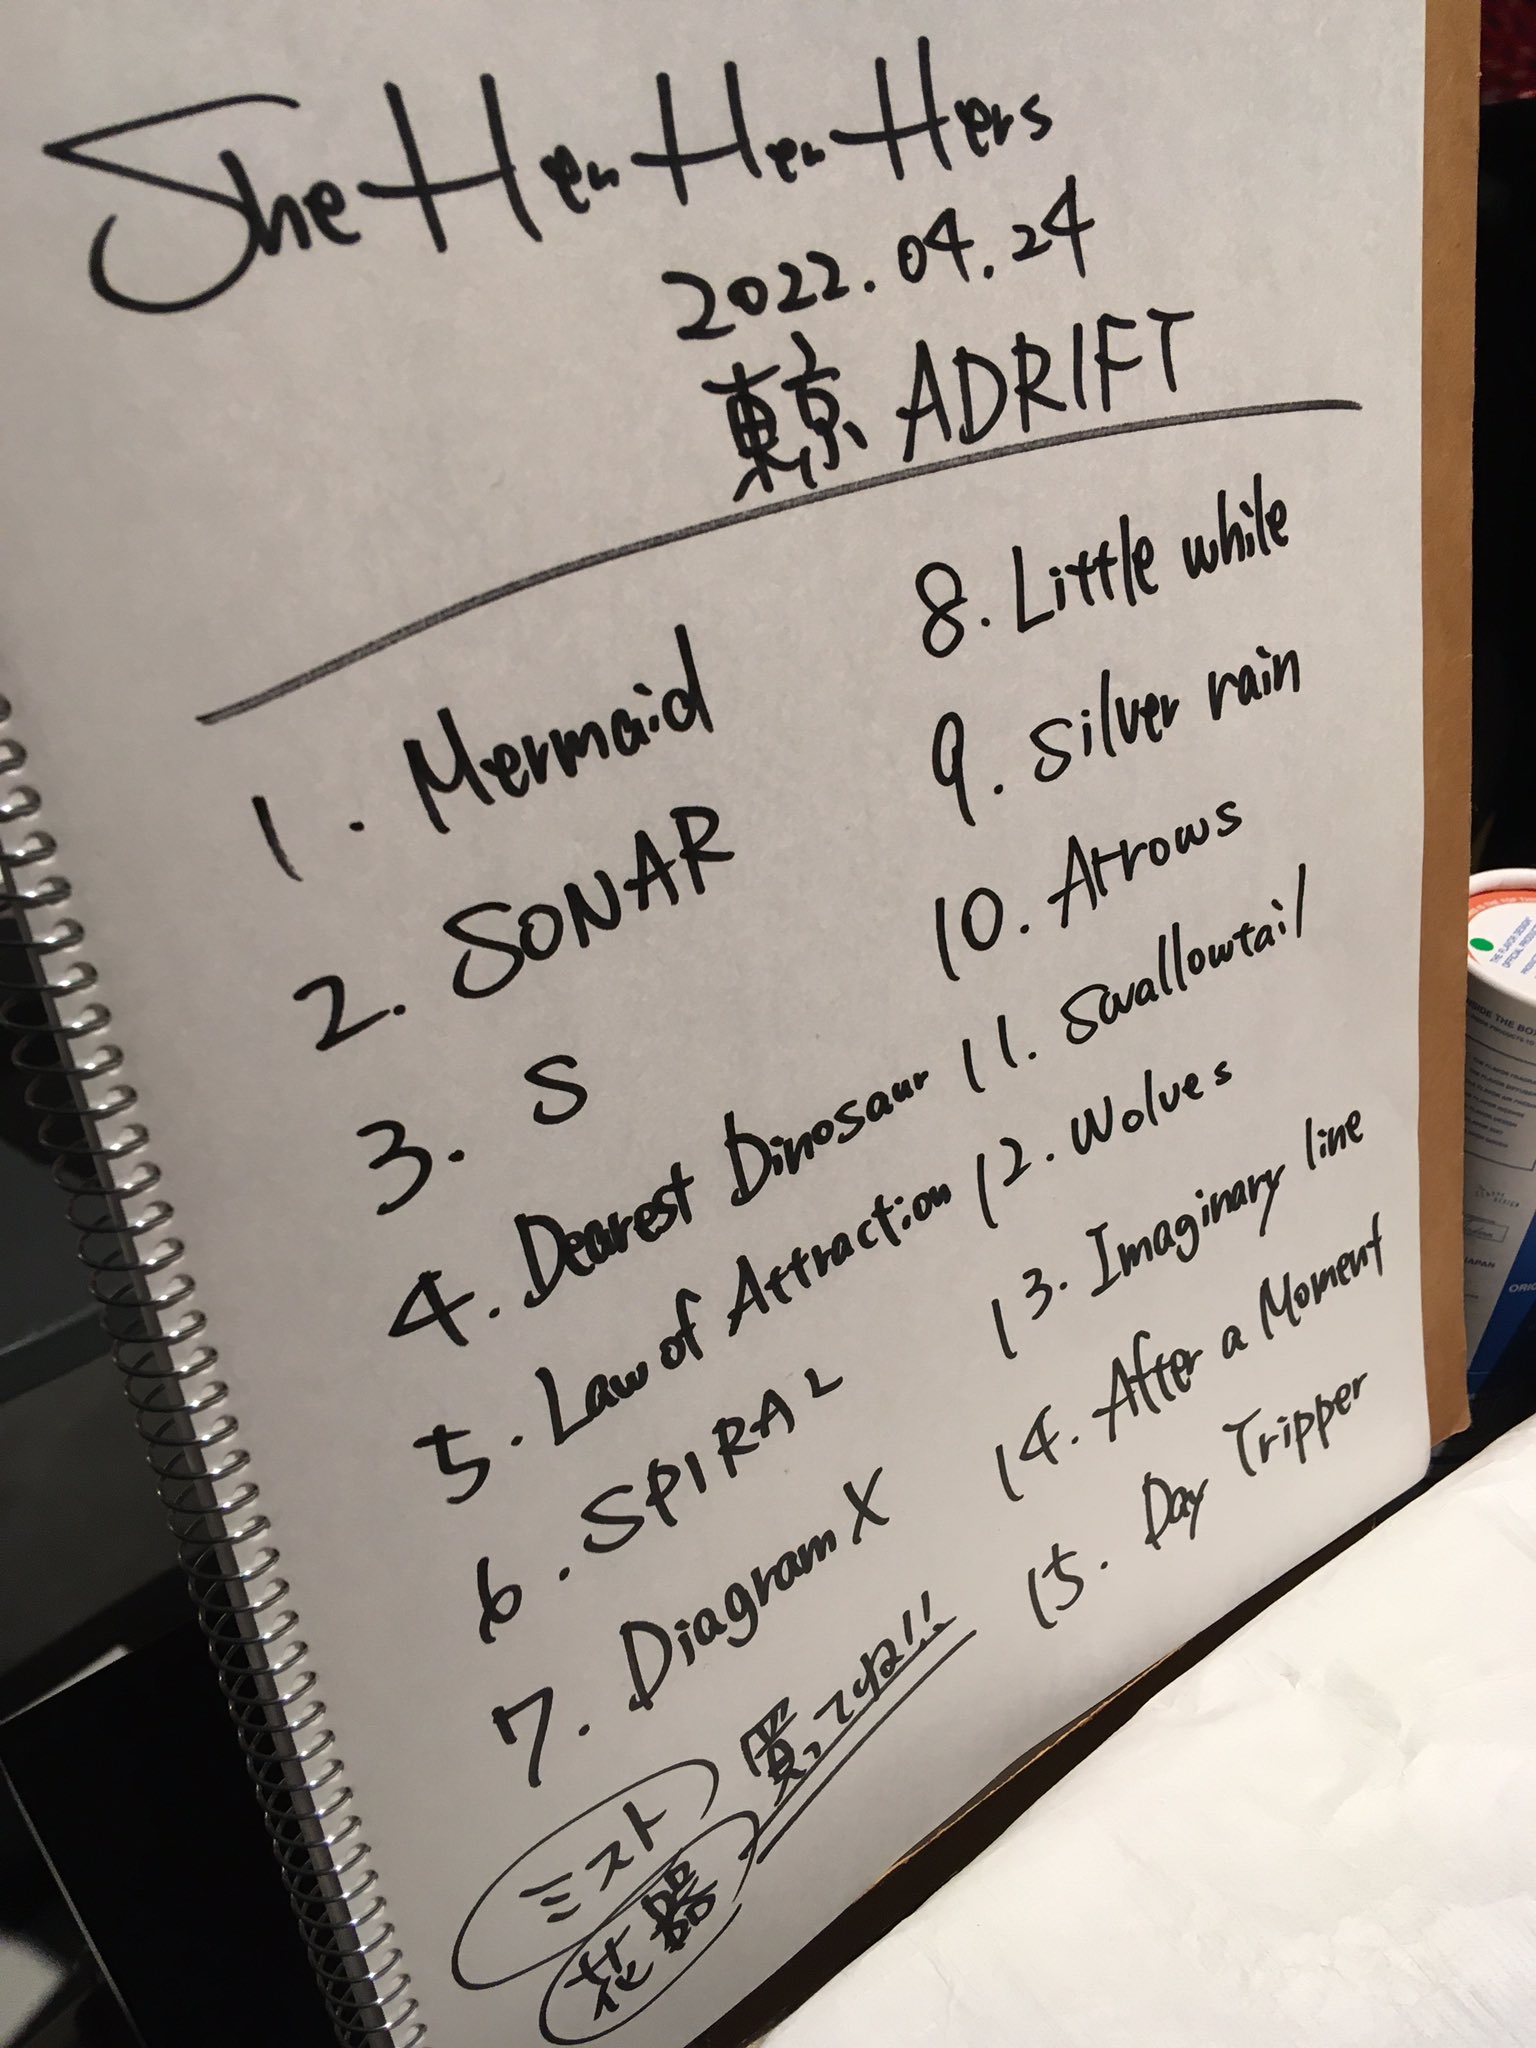 She Her Her Hers
2022.04.24
東京 ADRIFT
1. Mermaid
2. SONAR
3. S
4. Dearest Dinosaur
5. Law of Attraction
6. SPIRAL
7. Diagram X
8. Little while
9. Silver rain
10. Arrows
11. Swallowtail
12. Wolves
13. Imaginary line
14. After a Moment
15. Day Tripper
買ってね!!
ミスト
花器
THE FLAVOR DESIGN
OFFICIAL PRODUCT
INSIDE THE BOX
JAPAN